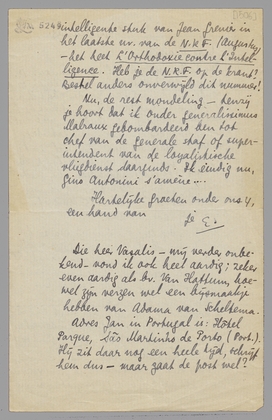 [1936]
5249
intelligente stuk van Jean Grenier in
het laatste nr. van de N.R.F. (Augustus)
– het heet L'Orthodoxie contre l'Intel-
ligence. Heb je de N.R.F. op de krant?
Bestel anders onverwijld dit nummer!
Nu, de rest mondeling – tenzij
je hoort dat ik onder generalissimus
Malraux gebombardeerd ben tot
chef van de generale staf of super-
intendent van de loyalistische
vliegdienst daarginds. Ik eindig nu,
Gino Antonini s'amène....
Hartelijke groeten onder ons 4,
een hand van
je E.
Die heer Vasalis – mij verder onbe-
kend – vond ik ook heel aardig; zeker
even aardig als bv. Van Hattum, hoe-
wel zijn verzen wel een bijsmaakje
hebben van Adama van Scheltema.
Adres Jan in Portugal is: Hôtel
Parque, São Martinho do Porto (Port.).
Hij zit daar nog een heele tijd, schrijf
hem dus – maar gaat de post wel?